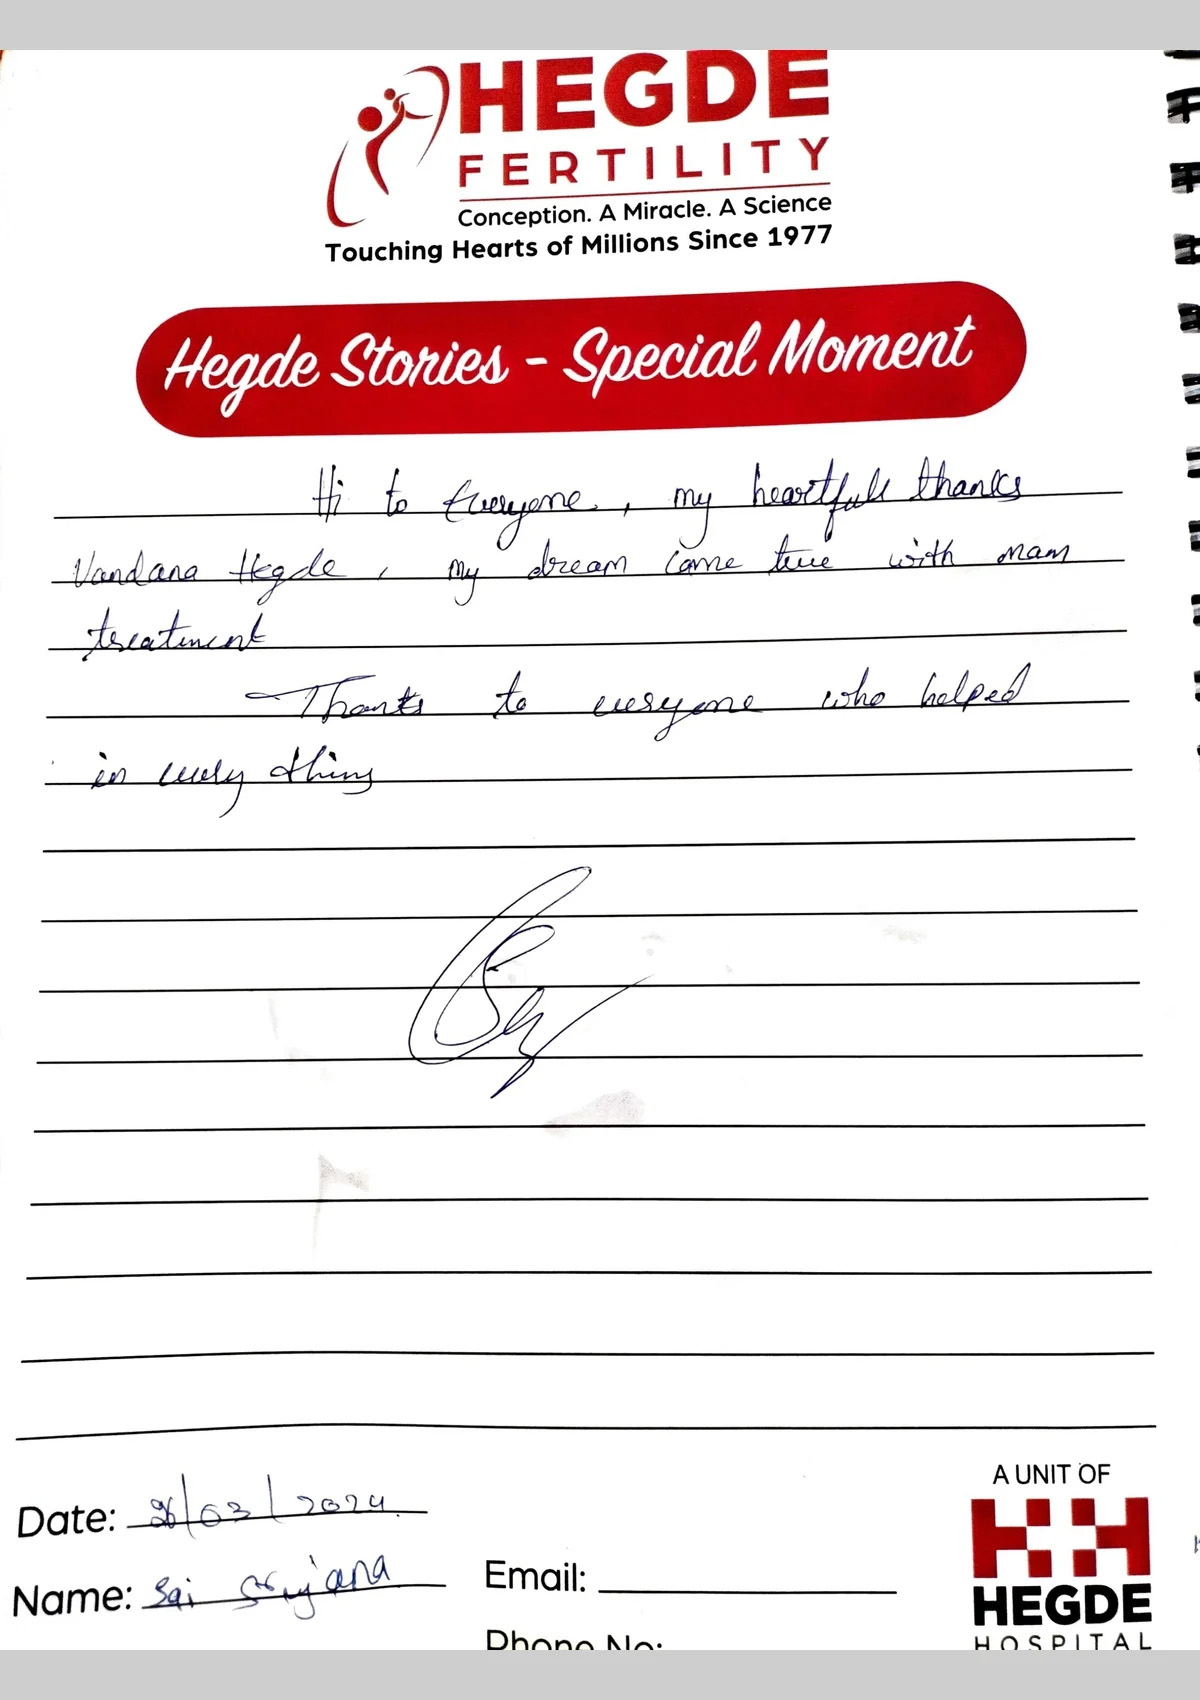 HEGDE
FERTILITY
Conception. A Miracle. A Science
Touching Hearts of Millions Since 1977
Hegde Stories - Special Moment
Hi to Everyone, my heartfull thanks
Vandana Hegde, my dream came true with mam
treatment
Thanks to everyone who helped
in every thing
Date: 26/03/2024
Name: Sai Srujana
Email:
Phone No:
A UNIT OF
HEGDE
HOSPITAL